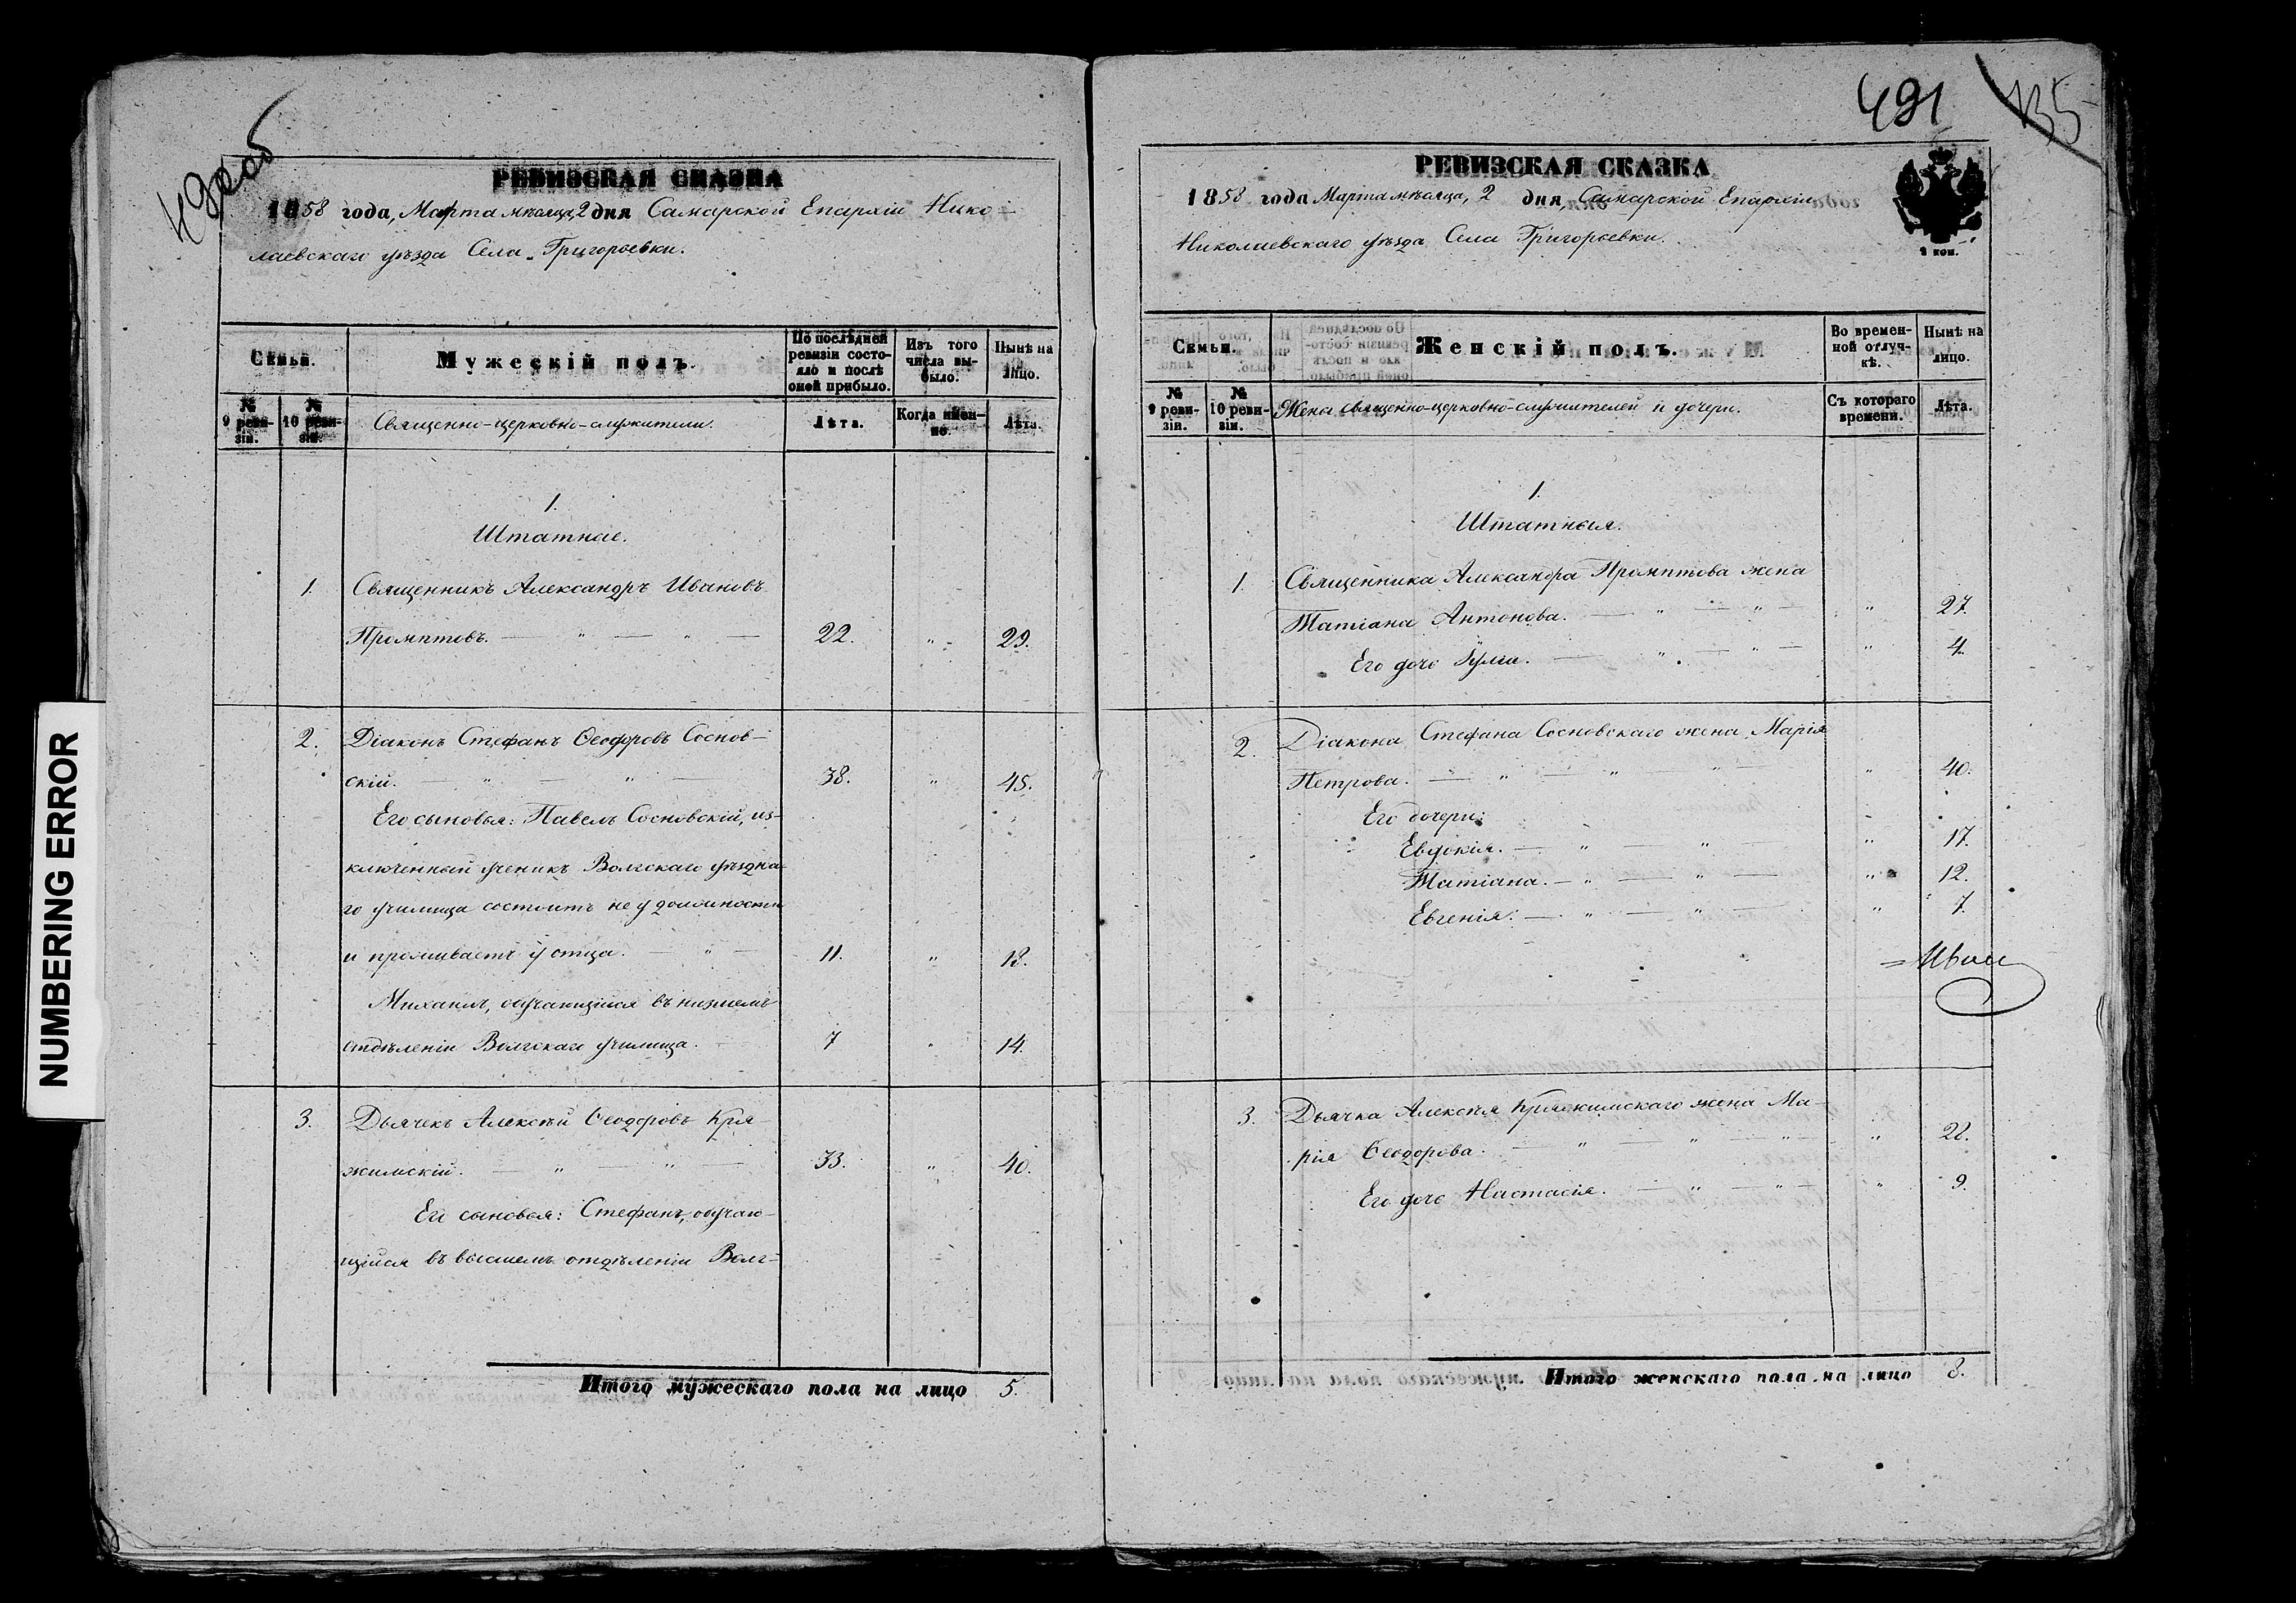 NUMBERING ERROR
РЕВИЗСКАЯ СКАЗКА
1858 года, Марта мѣсяца, 2 дня Самарской Епархіи Нико-
лаевскаго уѣзда Села Григорьевки.
Семьи.
Мужескій полъ.
По послѣдней ревизіи состояло и послѣ оной прибыло.
Изъ того числа выбыло.
Нынѣ на лицо.
№ 9 ревизіи.
№ 10 ревизіи.
Священно-церковно-служители.
Лѣта.
Когда именно.
Лѣта.
1.
Штатные.
1. Священникъ Александръ Ивановъ
Промптовъ. — " — " — 22. " 29.
2. Діаконъ Стефанъ Ѳеодоровъ Соснов-
скій. — " — " — 38. " 45.
Его сыновья: Павелъ Сосновскій, из-
ключенный ученикъ Волгскаго уѣздна-
го училища состоитъ не у должности
и проживаетъ у отца. — " — 11. " 18.
Михаилъ, обучающійся въ низшемъ
отдѣленіи Волгскаго училища. — 7 " 14.
3. Дьячекъ Алексѣй Ѳеодоровъ Кря-
жимскій. — " — " — 33. " 40.
Его сыновья: Стефанъ, обучаю-
щійся въ высшемъ отдѣленіи Волг-
Итого мужескаго пола на лицо 5.
491
135
РЕВИЗСКАЯ СКАЗКА
1858 года Марта мѣсяца, 2 дня, Самарской Епархіи
Николаевскаго уѣзда Села Григорьевки.
2 коп.
Семьи.
Женскій полъ.
Во временной отлучкѣ.
Нынѣ на лицо.
№ 9 ревизіи.
№ 10 ревизіи.
Жены священно-церковно-служителей и дочери.
Съ котораго времени.
Лѣта.
1.
Штатныя.
1. Священника Александра Промптова жена
Татіана Антонова. — " — " — " 27
Его дочь Юлія. — " — " — " 4.
2. Діакона Стефана Сосновскаго жена Марія
Петрова. — " — " — " — " 40.
Его дочери:
Евдокія. — " — " — " 17.
Татіана. — " — " — " 12.
Евгенія. — " — " — " 7.
3. Дьячка Алексѣя Кряжимскаго жена Ма-
рія Ѳеодорова. — " — " — " — " 28.
Его дочь Настасія. — " — " — " 9.
Итого женскаго пола на лицо 8.